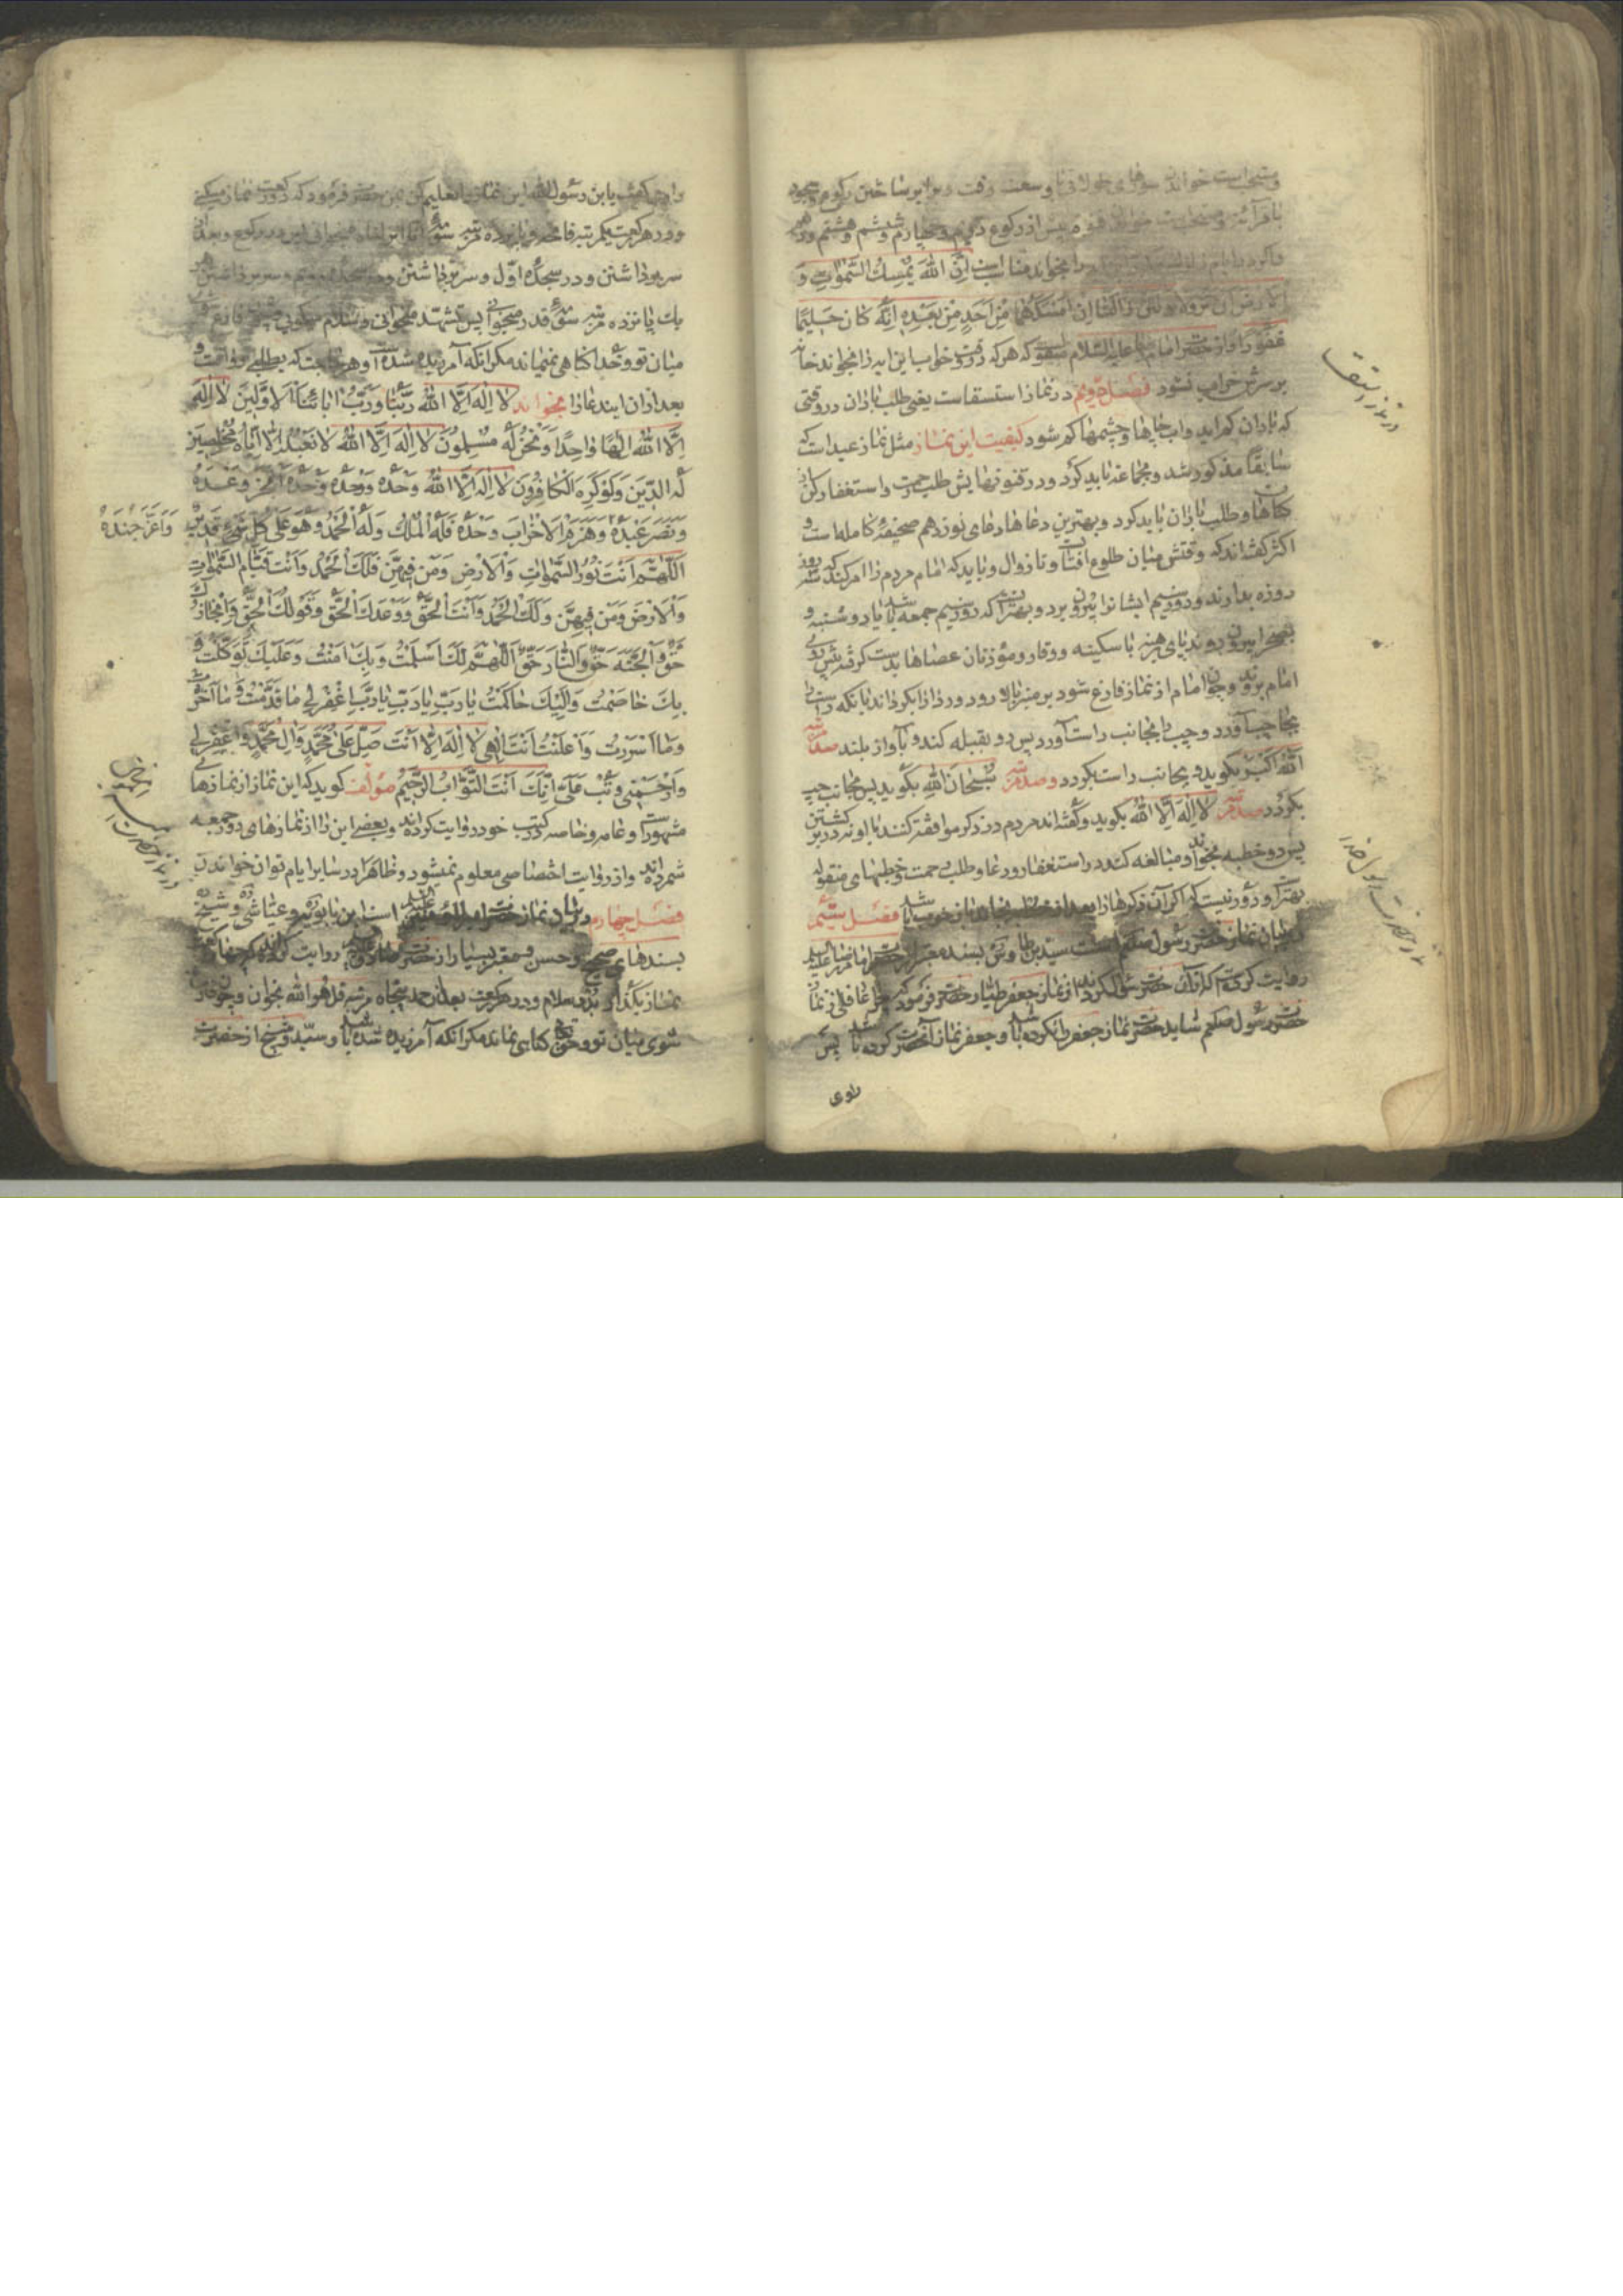 و مستحب است خواندن سورهای طولانی با وسعت وقت و برابر ساختن رکوع و سجود
با قرائت و مستحبست خواندن قنوت پیش از رکوع دویم و چهارم و ششم و هشتم و دهم
را بخواند مناسب است اِنَّ اللهَ یُمْسِكُ السَّمٰوَاتِ وَ
الْاَرْضَ اَنْ تَزُولَا وَلَئِنْ زَالَتَا اِنْ اَمْسَكَهُمَا مِنْ اَحَدٍ مِنْ بَعْدِهِ اِنَّهُ كَانَ حَلِیمًا
غَفُورًا و از حضرت امام علیه السلام منقولست که هر که در وقت خواب این ایه را بخواند خانه
بر سرش خراب نشود فصل دویم در نماز استسقاست یعنی طلب باران در وقتی
که باران کم اید و اب چاهها و چشمها کم شود کیفیت این نماز مثل نماز عید است که
سابقا مذکور شد و بجماعة باید کرد و در قنوتهایش طلب رحمت و استغفار از
کناهان و طلب باران باید کرد و بهترین دعاها دعای نوزدهم صحیفه کامله است و
اکثر گفته‌اند که وقتش میان طلوع افتاب و تا زوال و باید که امام مردم را امر کند که سه روز
روزه بدارند و روز سیم ایشانرا بیرون برد و بهتر انست که روز سیم جمعه باشد یا دوشنبه و
بصحرا بیرون روند پای برهنه با سکینه و وقار و مؤذنان عصاها بدست گرفته پیش روی
امام بروند و چون امام از نماز فارغ شود بر منبر بالا رود و ردا را بگرداند بانکه راست را
بجانب چپ آورد و چپ را بجانب راست آورد پس رو بقبله کند و بآواز بلند صد مرتبه
اللهُ اَكْبَرُ بگوید و بجانب راست بگردد و صد مرتبه سُبْحَانَ اللهِ بگوید پس بجانب چپ
بگردد صد مرتبه لَا اِلٰهَ اِلَّا اللهُ بگوید و گفته‌اند مردم در ذکر موافقت کنند با او نه در برگشتن
پس دو خطبه بخواند و مبالغه کند در استغفار و دعا و طلب رحمت و خطبهای منقوله
بهتر است و دور نیست که اگر آن ذکرها را بعد از خطبه بخواند خوب باشد فصل سیّم
در بیان نماز حضرت رسول صلعم است سید بن طاوس بسند معتبر از حضرت امام رضا علیه السلام
روایت کرده که از آن حضرت سؤال کردند از نماز جعفر طیار حضرت فرمود که چرا غافلی از نماز
حضرت رسول صلعم شاید حضرت نماز جعفر را نکرده باشد و جعفر نماز آنحضرت کرده باشد پس
راوی
در نماز استسقا
راوی گفت یابن رسول الله این نماز را تعلیم کن بمن حضرت فرمود که دو رکعت نماز میکنی
و در هر رکعت یکمرتبه فاتحه و پانزده مرتبه سوره انا انزلناه میخوانی پس در رکوع و بعد از
سر برداشتن و در سجده اوّل و سر برداشتن و در سجده دویم و سر برداشتن هر
یك پانزده مرتبه سوره قدر میخوانی پس تشهد میخوانی و سلام میگویی چون فارغ شوی
میان تو و خدا کناهی نمیماند مکر انکه آمرزیده شده است و هر حاجت که بطلبی رواست و
بعد از ان ایندعا را بخواند لَا اِلٰهَ اِلَّا اللهُ رَبُّنَا وَرَبُّ اٰبَائِنَا الْاَوَّلِینَ لَا اِلٰهَ
اِلَّا اللهُ اِلٰهًا وَاحِدًا وَنَحْنُ لَهُ مُسْلِمُونَ لَا اِلٰهَ اِلَّا اللهُ لَا نَعْبُدُ اِلَّا اِیَّاهُ مُخْلِصِینَ
لَهُ الدِّینَ وَلَوْ كَرِهَ الْكَافِرُونَ لَا اِلٰهَ اِلَّا اللهُ وَحْدَهُ وَحْدَهُ وَحْدَهُ اَنْجَزَ وَعْدَهُ
وَنَصَرَ عَبْدَهُ وَهَزَمَ الْاَحْزَابَ وَحْدَهُ فَلَهُ الْمُلْكُ وَلَهُ الْحَمْدُ وَهُوَ عَلٰی كُلِّ شَیْءٍ قَدِیرٌ
وَاَعَزَّ جُنْدَهُ
اَللّٰهُمَّ اَنْتَ نُورُ السَّمٰوَاتِ وَالْاَرْضِ وَمَنْ فِیهِنَّ فَلَكَ الْحَمْدُ وَاَنْتَ قَیَّامُ السَّمٰوَاتِ
وَالْاَرْضِ وَمَنْ فِیهِنَّ وَلَكَ الْحَمْدُ وَاَنْتَ الْحَقُّ وَوَعْدُكَ الْحَقُّ وَقَوْلُكَ الْحَقُّ وَاِنْجَازُكَ
حَقٌّ وَالْجَنَّةُ حَقٌّ وَالنَّارُ حَقٌّ اَللّٰهُمَّ لَكَ اَسْلَمْتُ وَبِكَ اٰمَنْتُ وَعَلَیْكَ تَوَكَّلْتُ وَ
بِكَ خَاصَمْتُ وَاِلَیْكَ حَاكَمْتُ یَا رَبِّ یَا رَبِّ یَا رَبِّ اِغْفِرْ لِی مَا قَدَّمْتُ وَمَا اَخَّرْتُ
وَمَا اَسْرَرْتُ وَاَعْلَنْتُ اَنْتَ اِلٰهِی لَا اِلٰهَ اِلَّا اَنْتَ صَلِّ عَلٰی مُحَمَّدٍ وَاٰلِ مُحَمَّدٍ وَاغْفِرْ لِی
وَارْحَمْنِی وَتُبْ عَلَیَّ اِنَّكَ اَنْتَ التَّوَّابُ الرَّحِیمُ مؤلف کوید که این نماز از نمازهای
مشهور است و عامه و خاصه در کتب خود روایت کرده‌اند و بعضی این را از نمازهای روز جمعه
شمرده‌اند و از روایت اختصاصی معلوم نمیشود و ظاهرا در سایر ایام توان خواندن
فصل چهارم در بیان نماز حضرت است ابن بابویه و عیاشی و شیخ
بسندهای صحیح و حسن و معتبر بسیار از حضرت صادق روایت کرده‌اند که هرکه چهار رکعت
نماز بگذارد بدو سلام و در هر رکعت بعد از حمد پنجاه مرتبه قل هو الله بخواند و چون فارغ
شوی میان تو و حق تعالی کناهی نماند مکر انکه آمرزیده شده باشد و سیّد و شیخ از حضرت